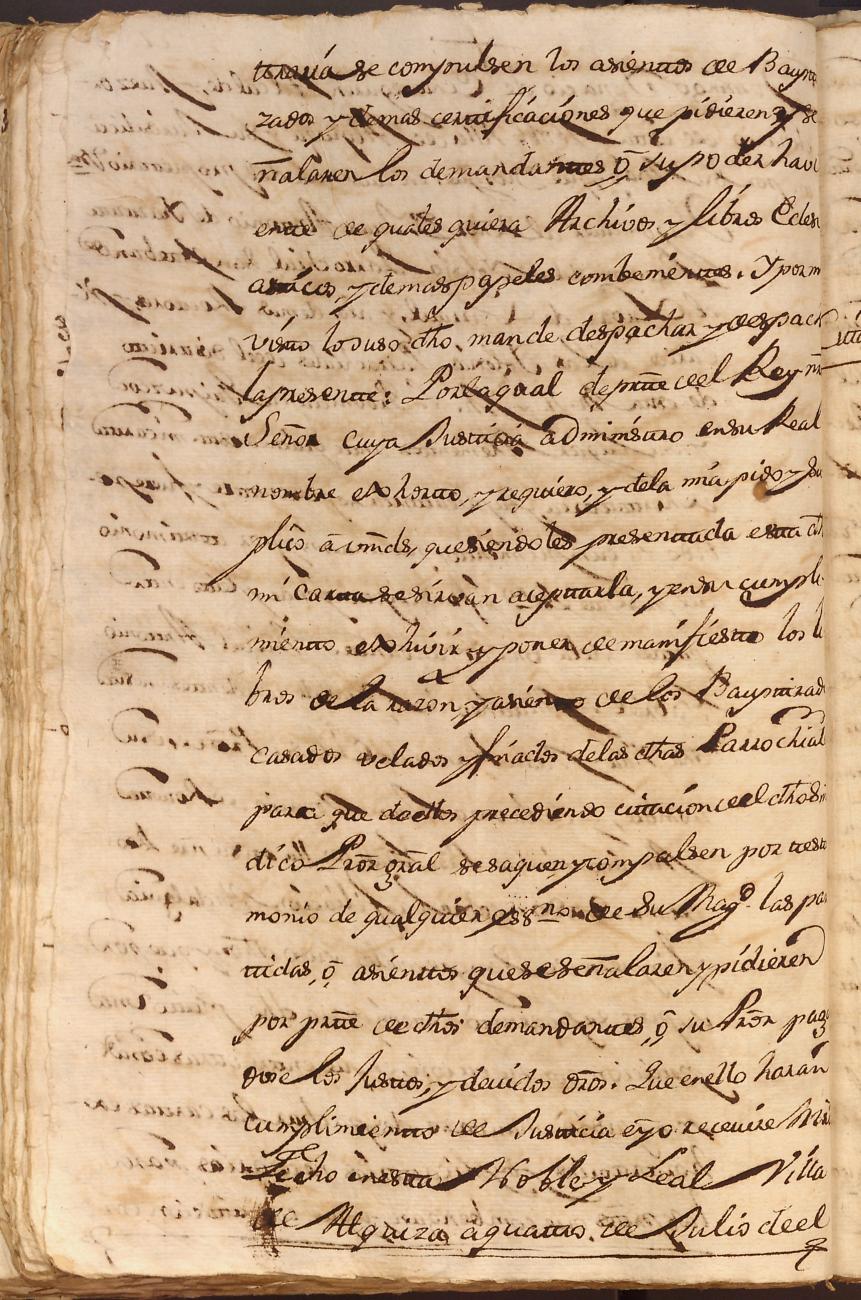 se compulsen los asientos de Bapti
zados y demas certificaciones que pidieren y se
ñalaren los demandantes ô su poder havi
ente de quales quiera Archivos y libros Ecclesi
asticos, y demas papeles combenientes. Y por m
visto lo suso dho mande despachar y despach
la presente: Por la qual de prte de el Rey nr̃
Señor cuya Justicia administro en su Real
nombre exhorto, y requiero, y de la mia pido y su
plico â vmds, que siendoles presentada esta dh
mi carta se sirvan aceptarla, y en su cumpli
miento exhivir y poner de manifiesto los li
bros de la razon y asiento de los Baptizad
casados velados y finados de las dhas Parrochial
para que de ellos precediendo citacion de el dho Sin
dico Prõr grãl se saquen y compulsen por testi
monio de qualquier essno de su Magd. las par
tidas, ô asientos que se señalaren y pidieren
por prte de dhos demandantes, ô su Prõr paga
dose los justos, y devidos drõs. Que en ello haràn
cumplimiento de Justicia è yo recevire Mrd
Fecho en esta Noble y Leal Villa
de Alquiza a quatro de Julio de el